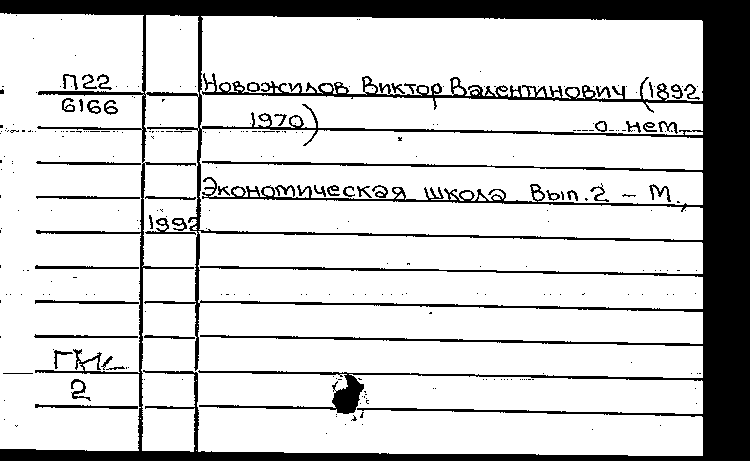 П22
6166
Новожилов Виктор Валентинович (1892
1970)
о нем
Экономическая школа Вып. 2 – М.,
1992
2